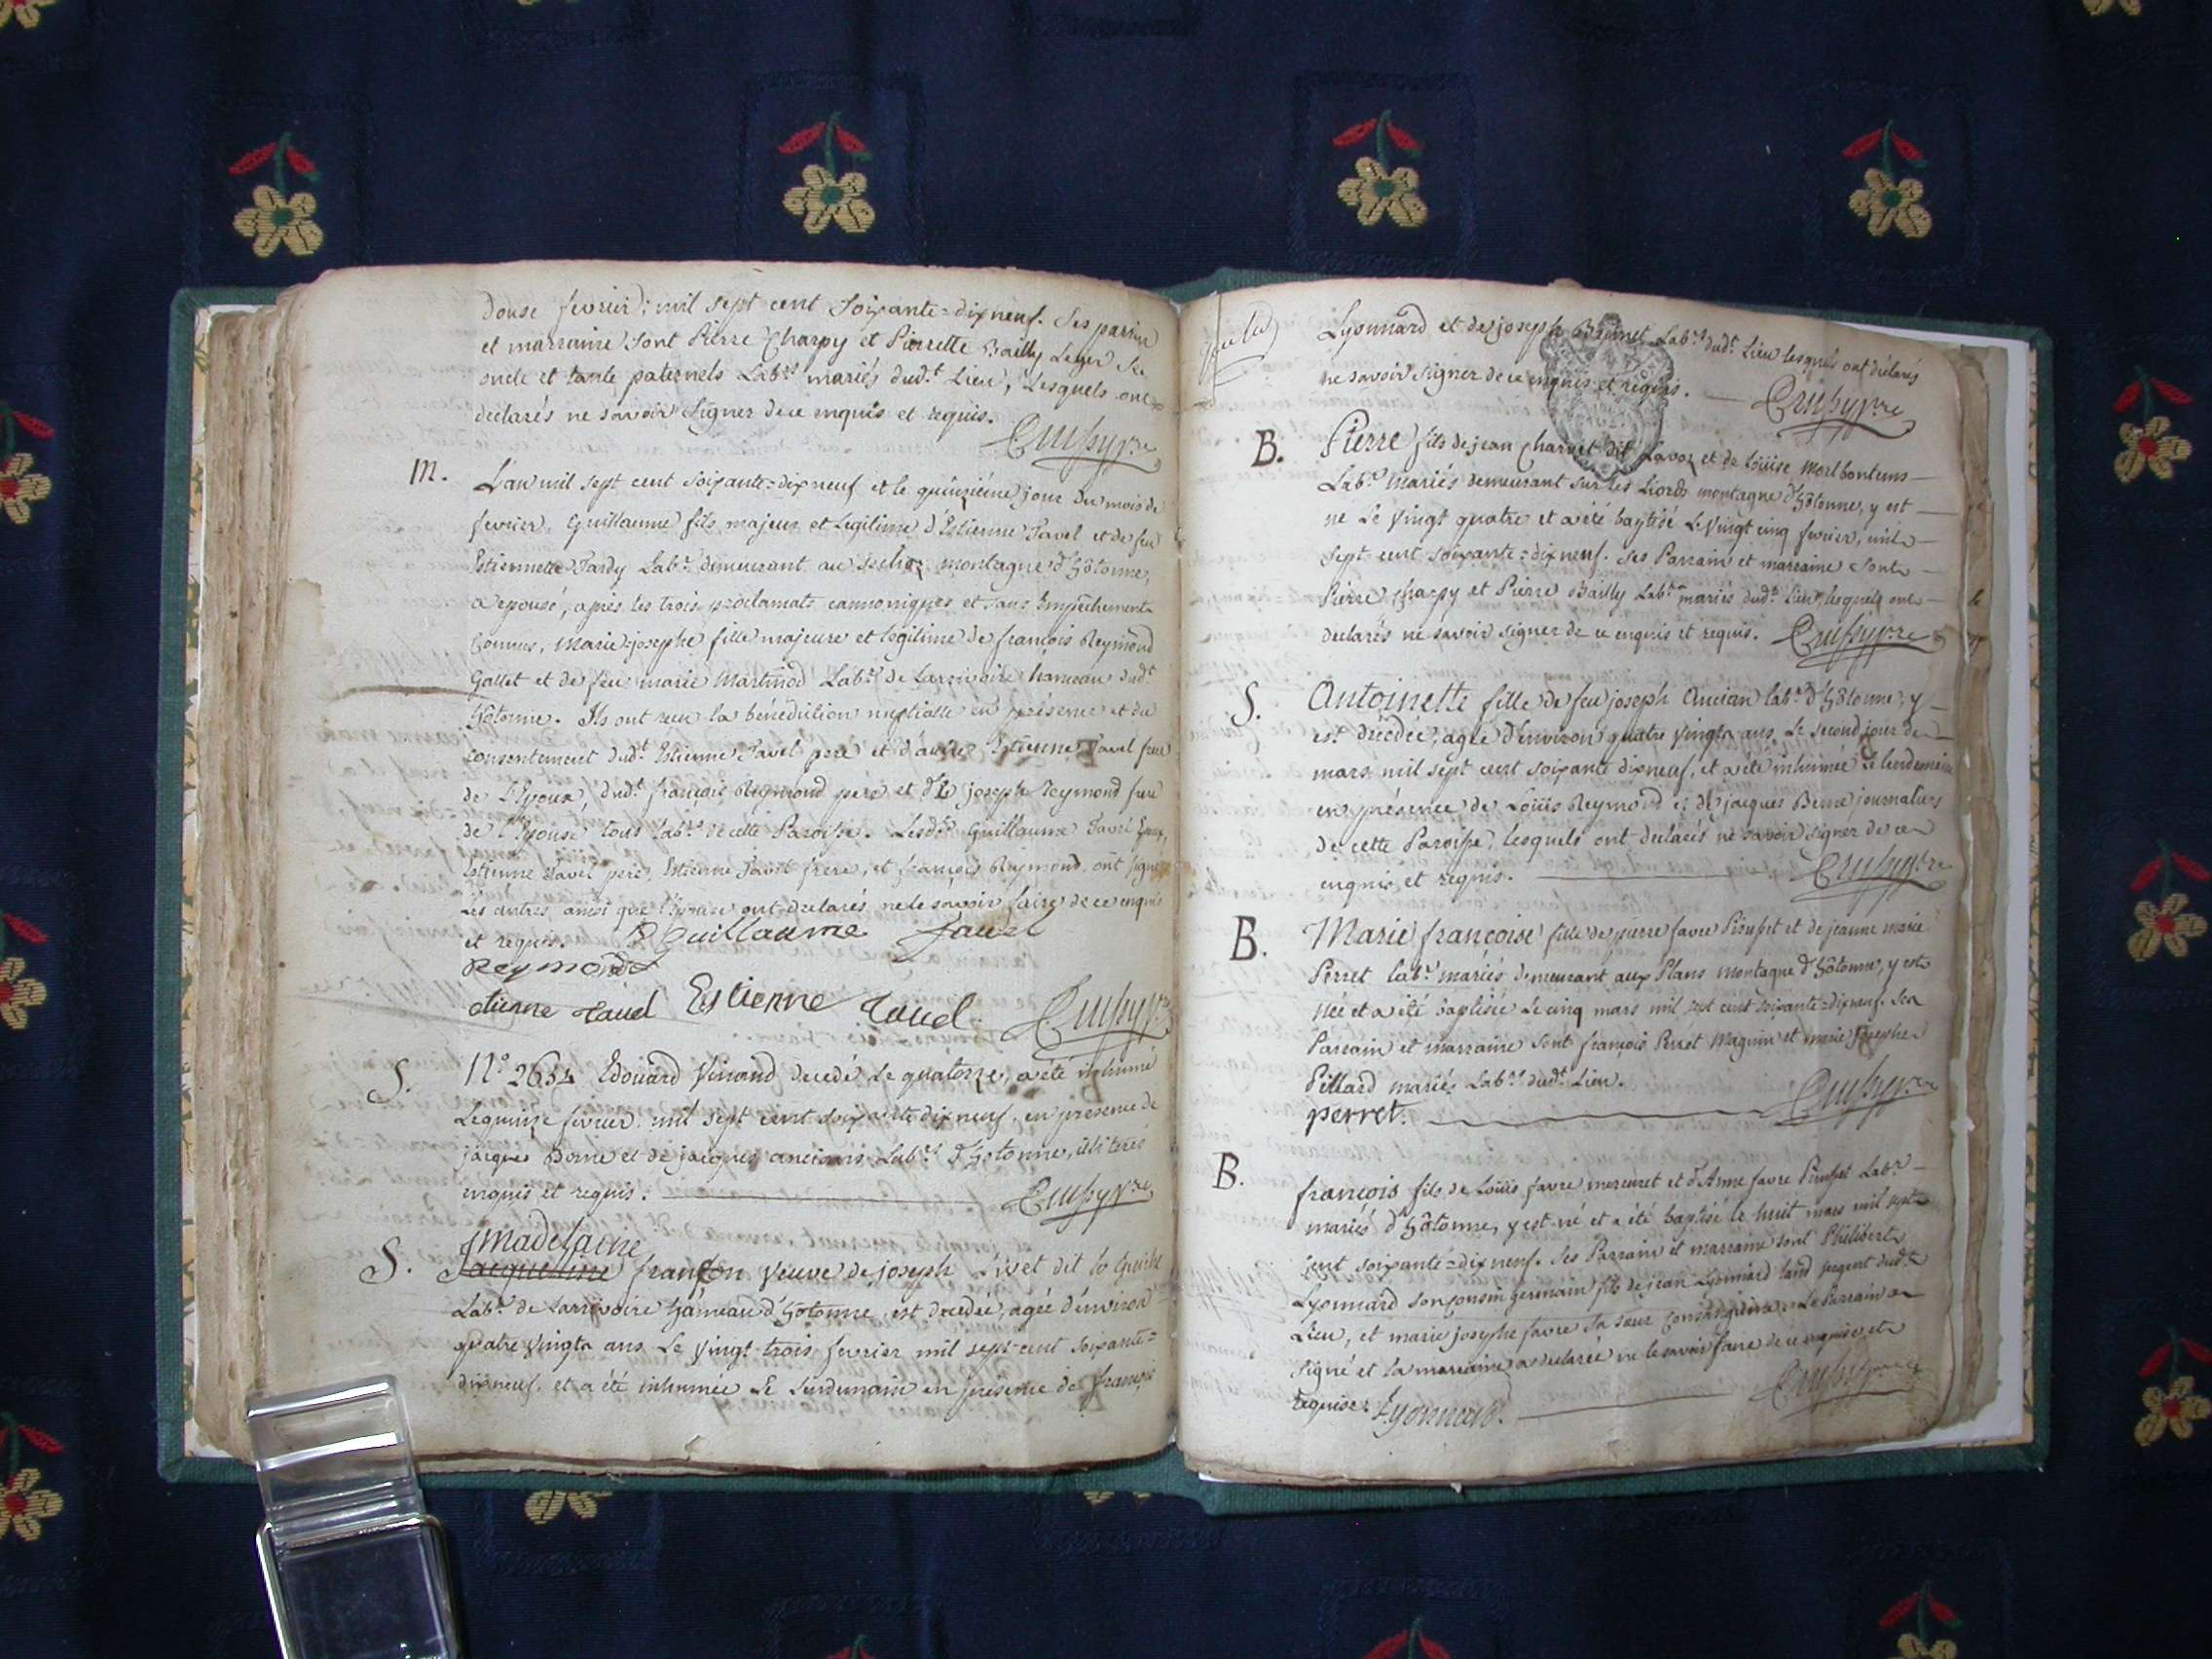 Douse fevrier; mil sept cent soixante=dix neuf. Ses parrin
et marraine sont Pierre Charpy et Pierrette Bailly Leger Se
oncle et tante paternels Lab.rs mariés dud.t Lieu, Lesquels ont
declarés ne savoir signer de ce enquis et requis.
M. L'an mil sept cent soixante=dix neuf et le quinzième jour du mois de
fevrier, Guillaume fils majeur et Legitime d'Estienne Tavel et de feu
Estiennette Tardy Lab.rs demeurant au montagne d'hôtonne,
a epousé, après les trois proclamats cannoniques et sans Empêchement
Connus, Marie=josephe fille majeure et legitime de françois Reymond
Gallet et de feu marie Martinod Lab.rs de Larrivoire hameau dud.t
hôtonne. Ils ont reçu la bénédiction nuptialle en présence et du
consentement dud.t Estienne Tavel pere et d'autre Estienne Tavel frere
de L'Epoux, dud.t françois Reymond pere et de joseph Reymond frere
de l'Epouse tous Lab.rs de cette Paroisse. Lesd.ts Guillaume Tavel Epoux,
Estienne Tavel pere, Estienne Tavel frere, et françois Reymond ont signé
Les autres ainsi que l'Epouse ont declarés ne le savoir faire de ce enquis
et requis. Guillaume Tavel
Reymond
etienne tavel Estienne Tavel
S. N.° 2634 Edouard Vinand decedé Le quatorze, a été inhumé
Le quinze fevrier mil sept cent soixante dix neuf, en presence de
jacques Berne et de jacques ancians Lab.rs d'hotonne, illiterés
enquis et requis.
Madelaine
S. Jacqueline franson Veuve de joseph Livet dit
Lab.r de Larrivoire hameau d'hotonne, est decedée, agée d'environ
quatre Vingts ans Le Vingt-trois fevrier mil sept-cent soixante=
dix neuf, et a été inhumée Le Lendemain en présence de françois
Lyonnard et de joseph Lab.rs dud.t Lieu lesquels ont déclarés
ne savoir signer de ce enquis et requis.
B. Pierre fils de jean Charvet dit Lavoz et de Loüise Morlbontems
Lab.rs Mariés demeurant sur les Liords montagne d'hôtonne, y est
né Le Vingt quatre et a été baptisé Le Vingt cinq fevrier, mil
sept cent soixante=dix neuf. Ses Parrain et marraine sont
Pierre Charpy et Pierre Bailly Lab.rs mariés dud.t Lieu, lesquels ont
declarés ne savoir signer de ce enquis et requis.
S. Antoinette fille de feu joseph Ancian lab.r d'hôtonne, y
est décédée, agée d'environ quatre Vingts ans Le second jour de
mars mil sept cent soixante dix neuf, et a été inhumée Le lendemain
en présence de Loüis Reymond et de jacques Berne journaliers
de cette Paroisse, lesquels ont declarés ne savoir signer de ce
enquis et requis.
B. Marie françoise fille de pierre favre Pirusset et de jeanne marie
Perret lab.rs mariés demeurant aux Plans montagne d'hôtonne, y est
née et a été baptisée Le cinq mars mil sept cent soixante=dix neuf. Ses
Parrain et marraine sont françois Perret Maguin et marie josephe
Pillard mariés Lab.rs dud.t Lieu.
perret.
B. françois fils de Loüis favre mercuret et d'Anne favre Pirusset Lab.rs
mariés d'hôtonne, y est né et a été baptisé le huit mars mil sept
cent soixante=dix neuf. Ses Parrain et marraine sont Philibert
Lyonnard son cousin germain fils de jean Lyonnard sergent dud.t
Lieu, et marie josephe favre sa sœur consanguine. Le Parrain a
signé et la marraine a declarée ne le savoir faire de ce enquise et
requise. Lyonnard.